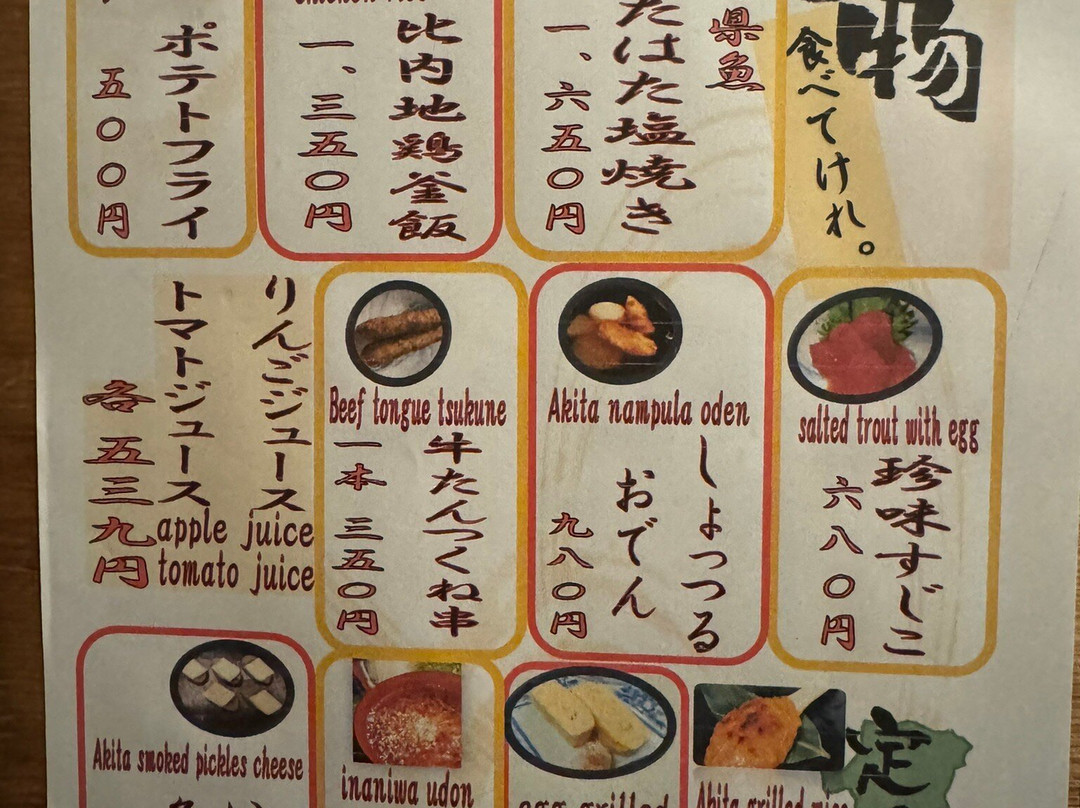 物
食べてけれ。
県魚
たはた塩焼き
一、六五〇円
比内地鶏釜飯
一、三五〇円
ポテトフライ
五〇〇円
salted trout with egg
珍味すじこ
六八〇円
Akita nampula oden
しょっつる
おでん
九八〇円
Beef tongue tsukune
牛たんつくね串
一本 三五〇円
りんごジュース
トマトジュース
各五三九円
apple juice
tomato juice
定
Akita grilled rice
egg grilled
inaniwa udon
Akita smoked pickles cheese